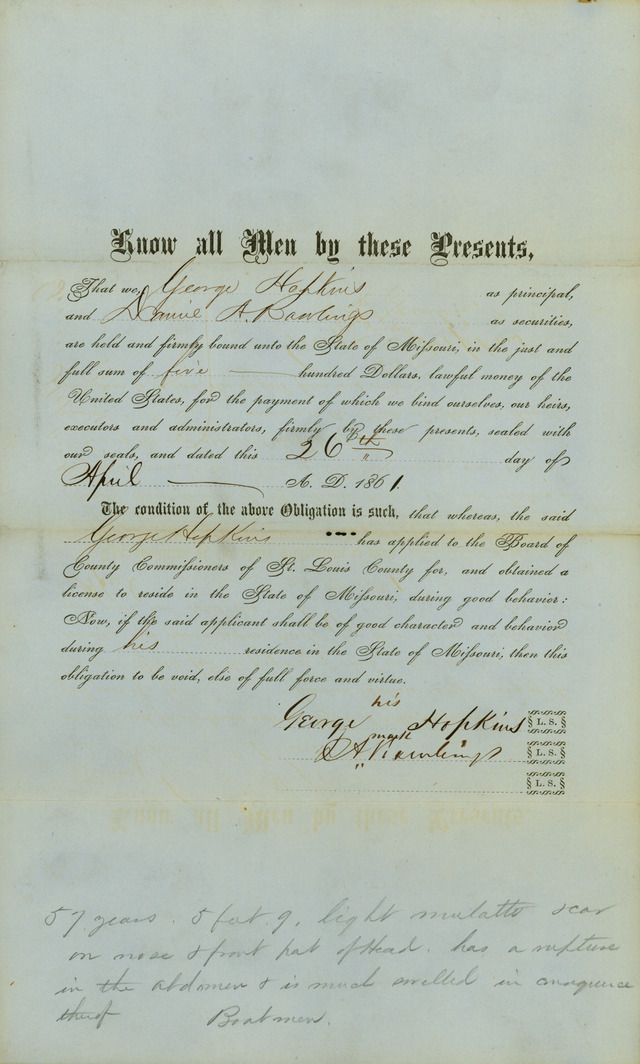 Know all Men by these Presents,
That we, George Hopkins as principal,
and Daniel A. Rawlings as securities,
are held and firmly bound unto the State of Missouri, in the just and
full sum of five hundred Dollars, lawful money of the
United States, for the payment of which we bind ourselves, our heirs,
executors and administrators, firmly by these presents, sealed with
our seals, and dated this 26th day of
April A. D. 1861.
The condition of the above Obligation is such, that whereas, the said
George Hopkins has applied to the Board of
County Commissioners of St. Louis County for, and obtained a
license to reside in the State of Missouri, during good behavior:
Now, if the said applicant shall be of good character and behavior
during his residence in the State of Missouri, then this
obligation to be void, else of full force and virtue.
his
George Hopkins § L. S. §
mark
D A Rawlings § L. S. §
§ L. S. §
57 years. 5 feet 9, light mulatto scar
on nose & front part of Head. has a rupture
in the abdomen & is much swelled in consequence
thereof Boatmen.